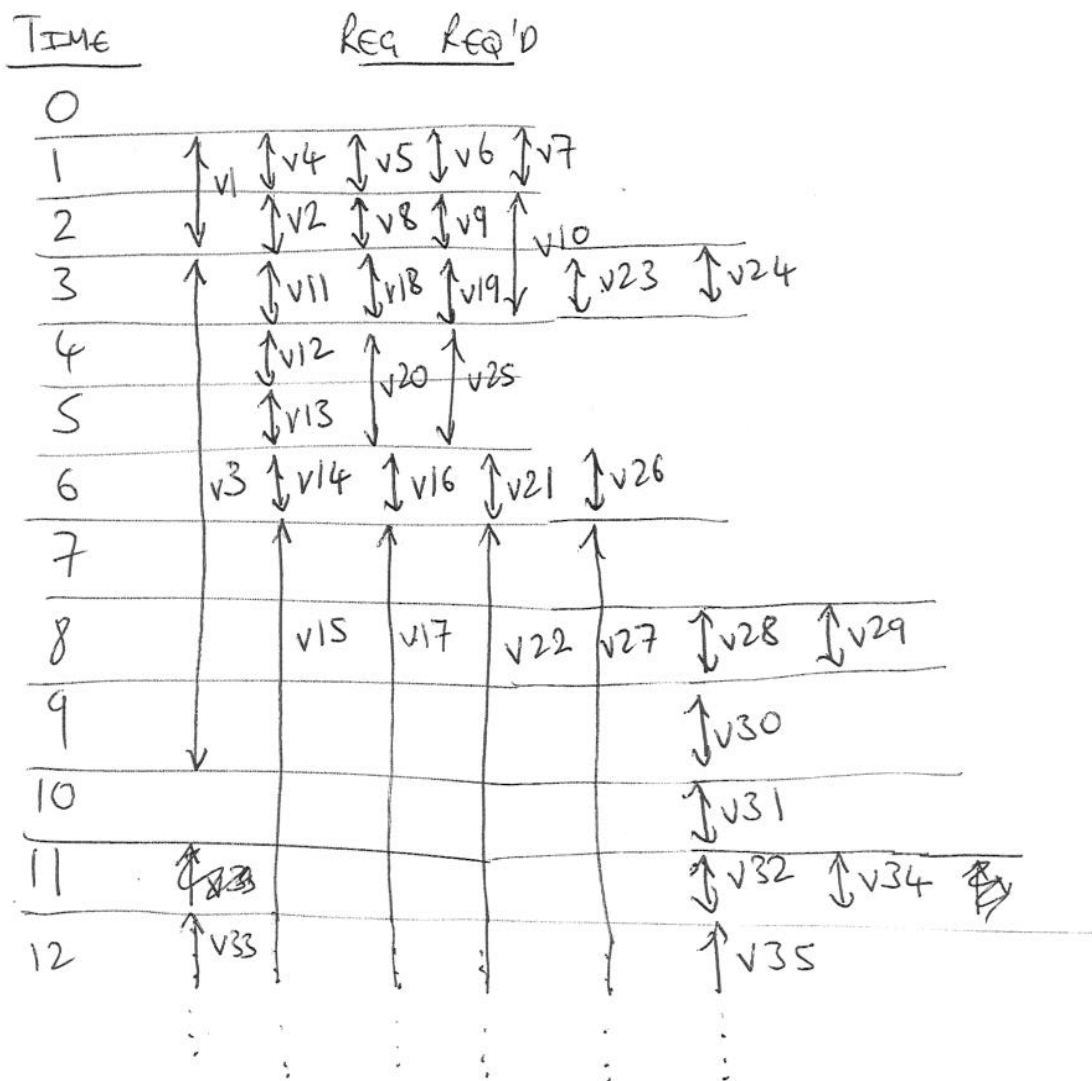 TIME REG REQ'D
0
1 v1 v4 v5 v6 v7
2 v2 v8 v9 v10
3 v11 v18 v19 v23 v24
4 v12 v20 v25
5 v13
6 v3 v14 v16 v21 v26
7
8 v15 v17 v22 v27 v28 v29
9 v30
10 v31
11 v32 v34
12 v33 v35